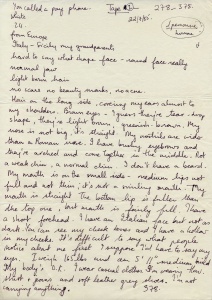 You called a pay phone. Tape 278 - 378.
White
24.
from Europe
Italy - Sicily my grandparents
hard to say what shape face - round face really
normal jaw
light brown hair
no scars no beauty marks, no acne.
Hair on the long side, covering my ears almost to
my shoulders. Brown eyes - I guess they're
shape, they're light brown, greenish-brown. My
nose is not big, it's straight. My nostrils are wider
than a Roman nose. I have bushy eyebrows and
they're arched and come together in the middle. Not
a weak chin, a normal chin. I don't have a beard.
My mouth is on the small side - medium lips not
full and not thin; it's not a smiling mouth. My
mouth is straight. The bottom lip is fuller than
the top one. That mouth is fairly full. I have
a short forehead. I have an Italian face but not so
dark. You can see my cheek bones and I have a hollow
in my cheeks. It's difficult to say what people
notice about me first I suppose I'd have to say my
eyes. I weigh 165 lbs and am 5' 11" - medium build
My body's O.K. I wear casual clothes. I'm wearing
shirt + jeans and soft leather grey shoes. I'm not
carrying anything. 378.